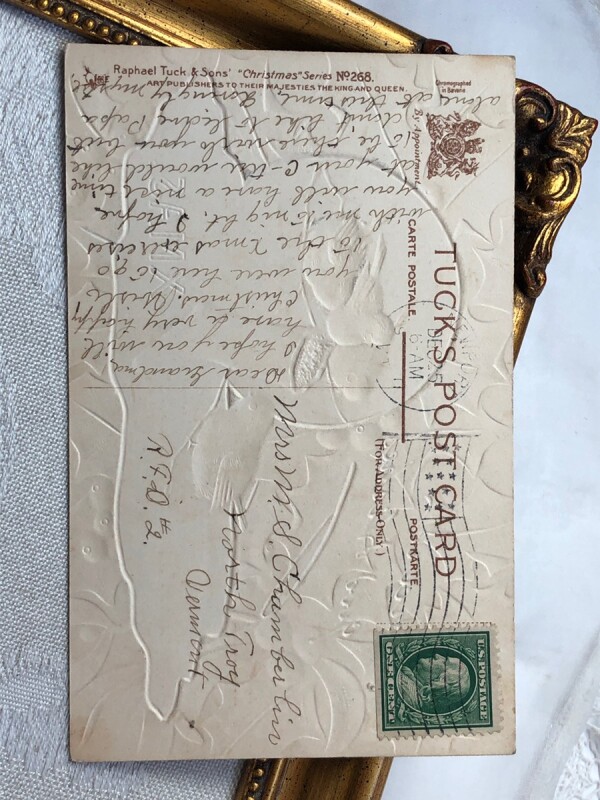 Raphael Tuck & Sons' "Christmas" Series No 268.
ART PUBLISHERS TO THEIR MAJESTIES THE KING AND QUEEN.
Chromographed
in Bavaria
By Appointment.
TUCK'S POST CARD
CARTE POSTALE.
POSTKARTE.
(FOR ADDRESS ONLY.)
DEC
8-AM
U.S. POSTAGE
ONE CENT
Mrs M. S. Chamberlin
North Troy
Vermont,
R.F.D. # 2.
Dear Grandma
I hope you will
have a very happy
Christmas. Wish
you were here to go
to the Xmas exercises
with me to night. I hope
you will have a nice time
at your C-tree would like
to be there with you but
don't like to leave Papa
alone at this time, Lovingly Myrtle